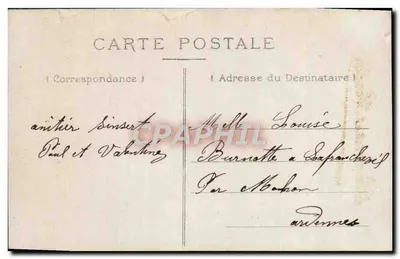 CARTE POSTALE
( Correspondance )
( Adresse du Destinataire )
amitiér Sinsert
Paul et Valentine
CPAPHIL
Melle Louise
Burnotte a Lafrancheville
Par Mohon
ardennes